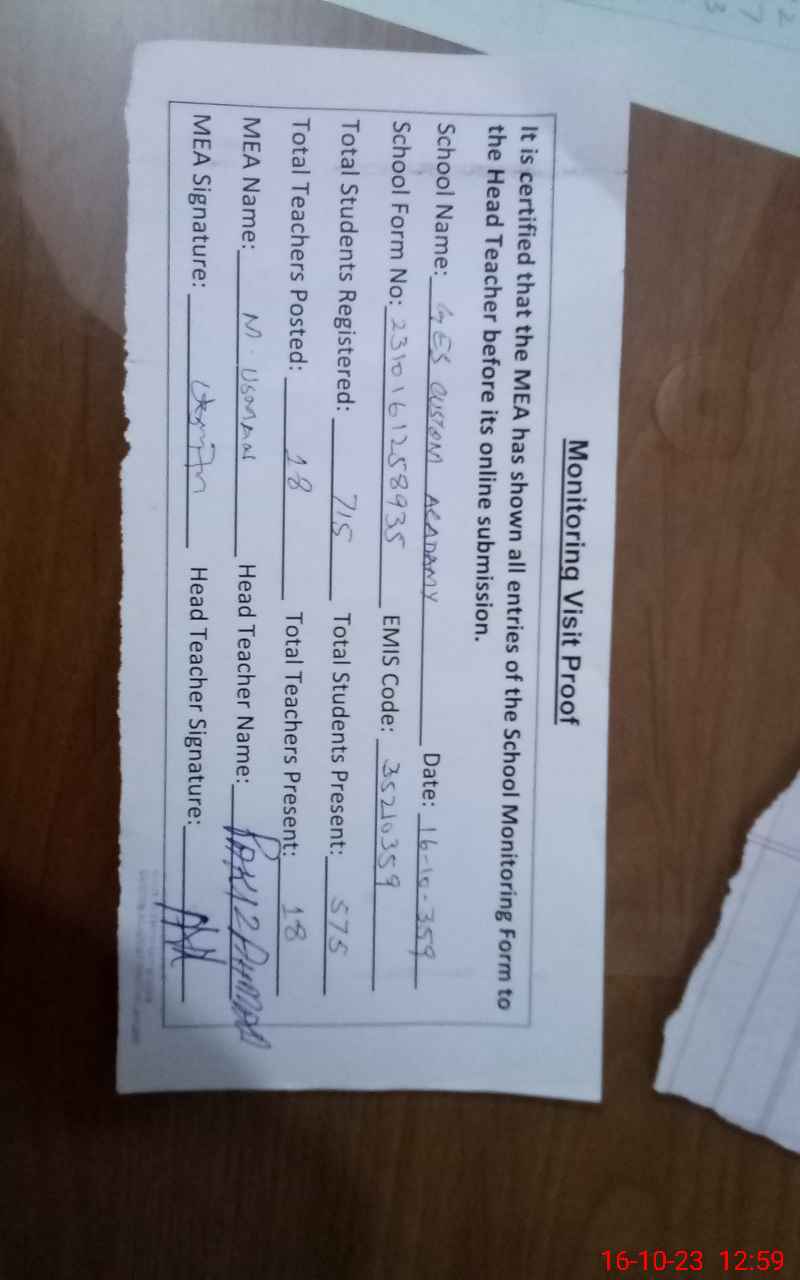 Monitoring Visit Proof
It is certified that the MEA has shown all entries of the School Monitoring Form to
the Head Teacher before its online submission.
School Name: GES CUSTOM ACADAMY Date: 16-10-359
School Form No: 2310161258935 EMIS Code: 35210359
Total Students Registered: 715 Total Students Present: 575
Total Teachers Posted: 18 Total Teachers Present: 18
MEA Name: M. USMAN Head Teacher Name:
MEA Signature: Head Teacher Signature:
16-10-23 12:59